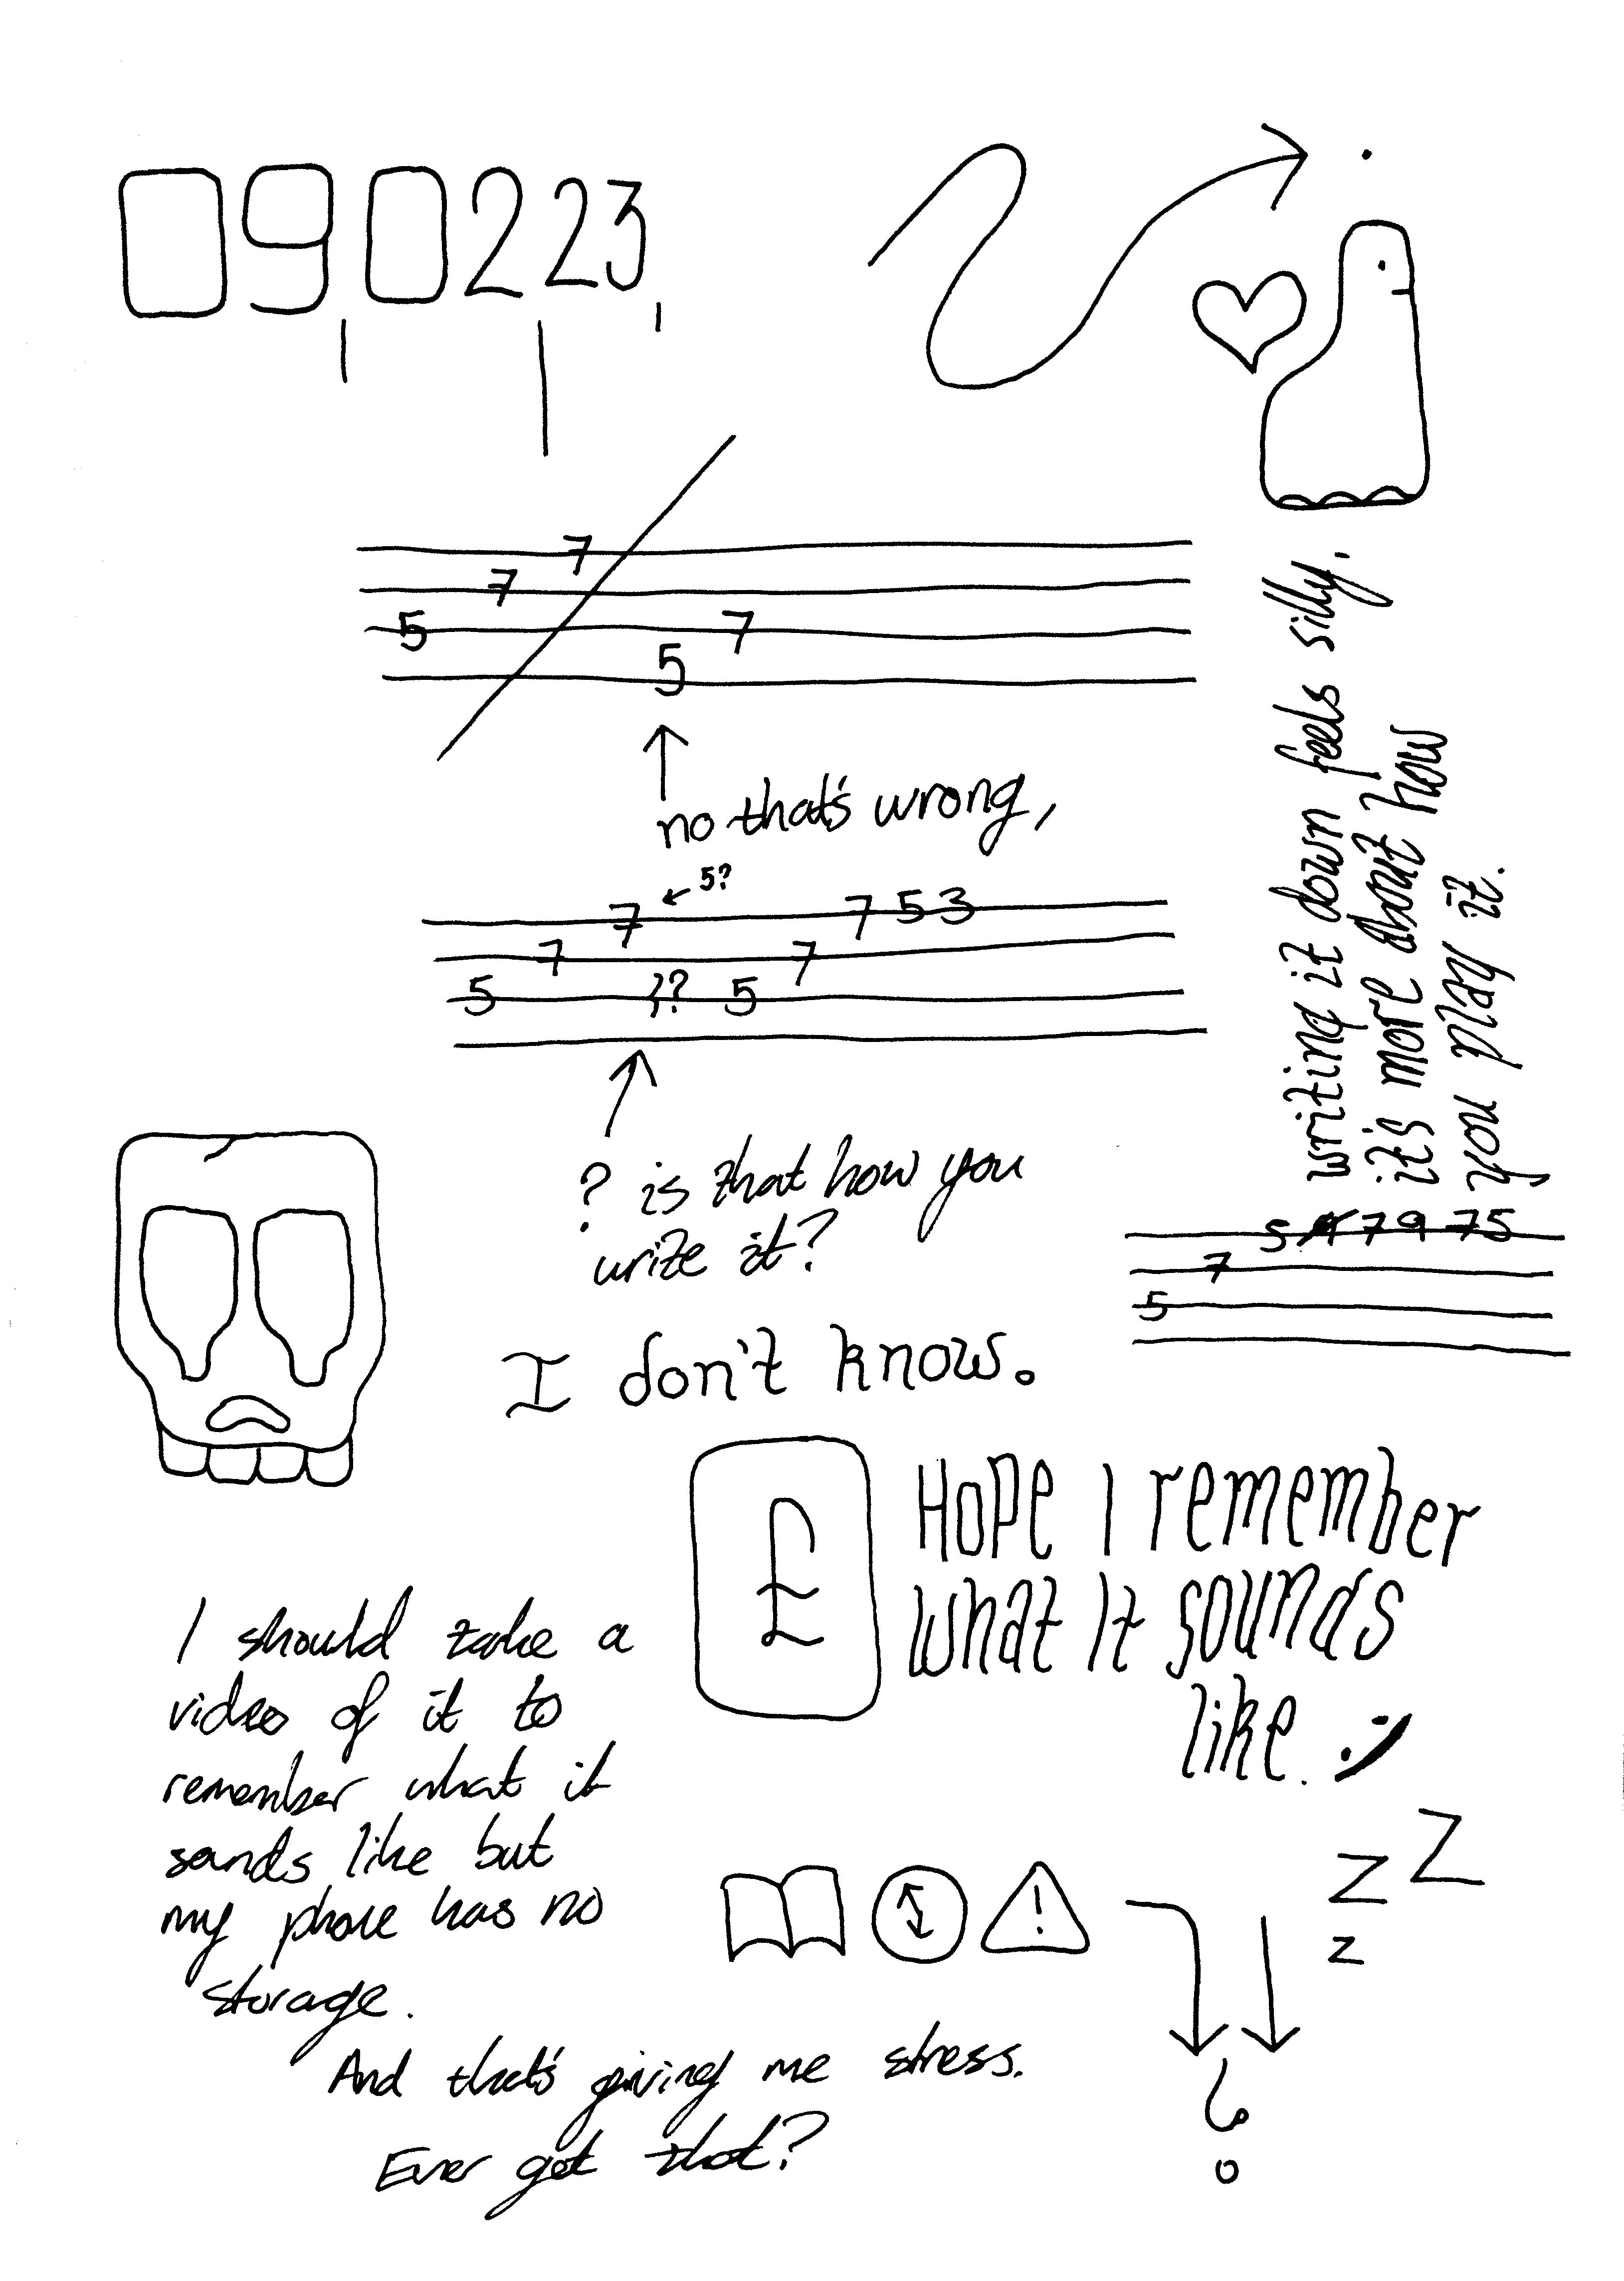 090223
7
7
5 7
5
no that's wrong,
5?
7 7 5 3
7 7
5 ?? 5
? is that how you
write it?
I don't know.
writing it down feels silly.
it's more about how
you play it.
5 7 9 7 5
7
5
£
Hope I remember
what It sounds
like. :)
I should take a
video of it to
remember what it
sounds like but
my phone has no
storage.
And that's giving me stress.
Ever get that?
!
z Z Z
?